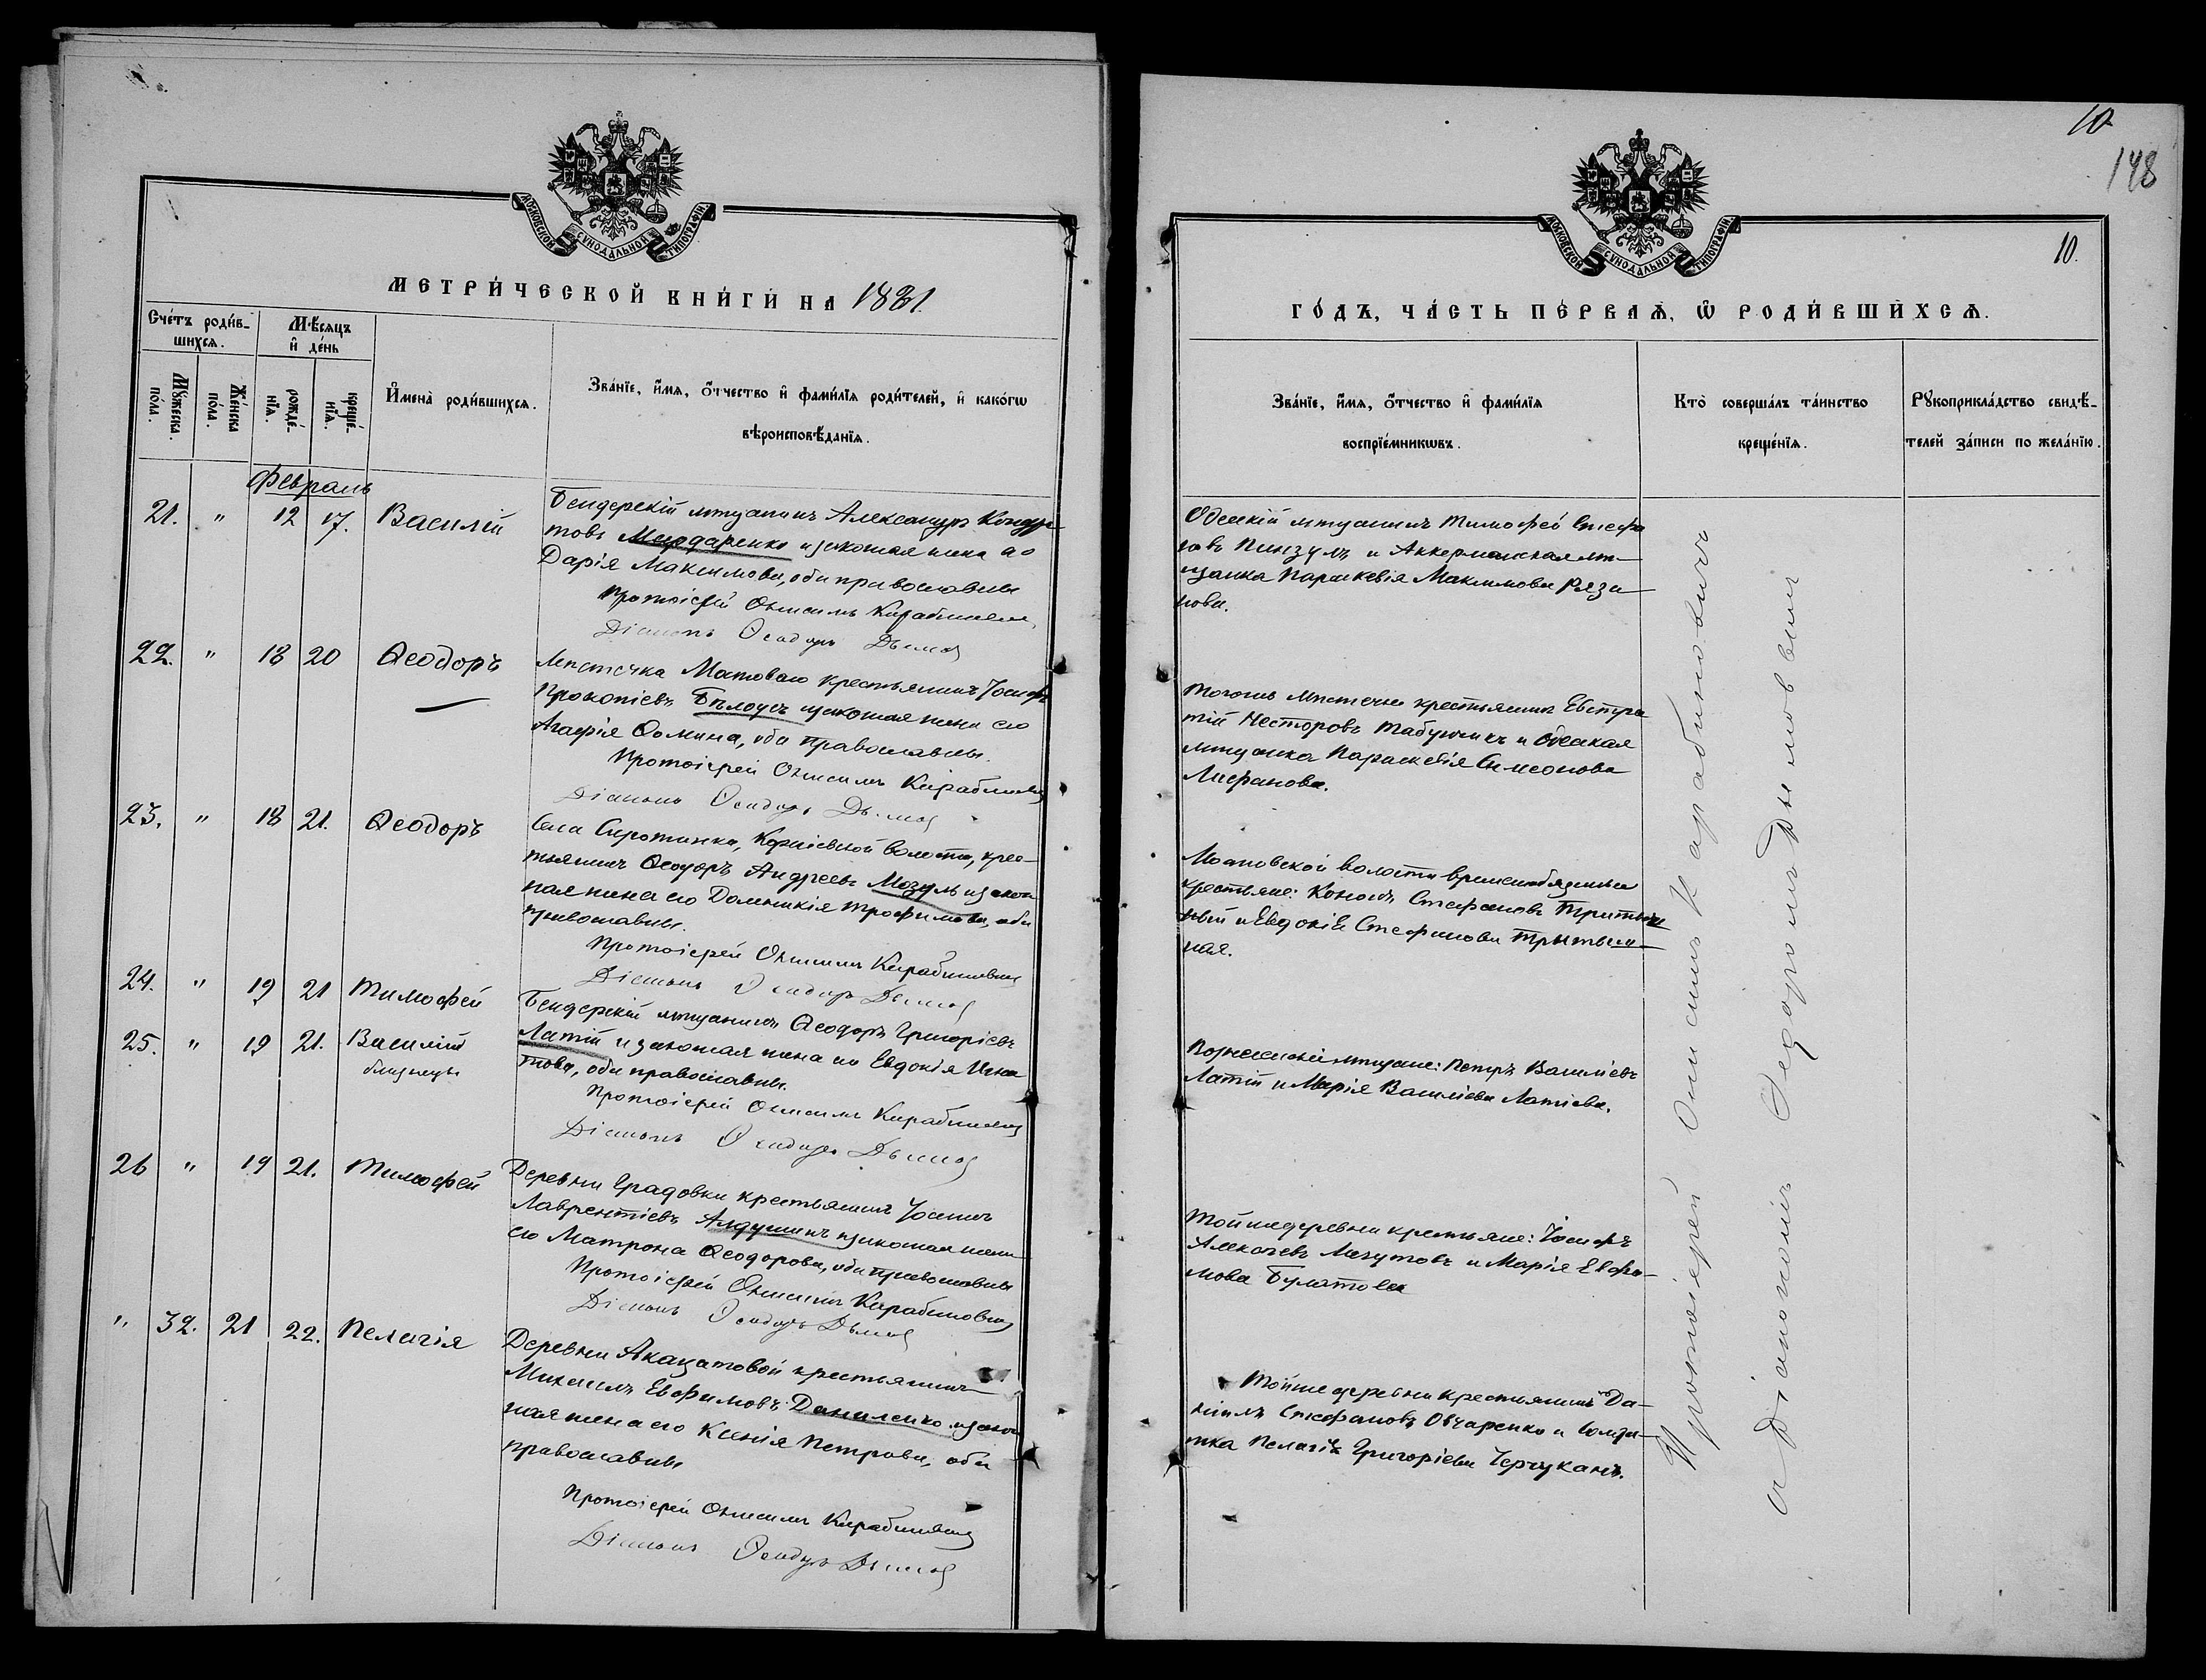 МОСКОВСКОЙ СУНОДАЛЬНОЙ ТИПОГРАФІИ.
МЕТРИ́ЧЕСКОЙ КНИ́ГИ НА 1881.
Сче́тъ роди́в-
шихсѧ.
Мѣ́сѧцъ
и҆ де́нь
Мꙋ́жеска
по́ла.
Же́нска
по́ла.
рожде́-
нїѧ.
креще́-
нїѧ.
И҆мена̀ роди́вшихсѧ.
Зва́нїе, и҆́мѧ, ѻ҆́тчество и҆ фами́лїѧ роди́телей, и҆ како́гѡ
вѣроисповѣ́данїѧ.
Февраль
21. " 12 17. Василій
Бендерскій мѣщанинъ Александръ Кондра-
товъ и законная жена его
Дарія Максимова, оба православны
Протоіерей Онисимъ Карабиновичъ
Діаконъ Ѳеодоръ Дымов
22. " 18 20 Ѳеодоръ
Мѣстечка крестьянинъ Іосифъ
Прокопіевъ Бѣлоусъ и законная жена его
Агафія Ѳомина, оба православны.
Протоіерей Онисимъ Карабиновичъ
Діаконъ Ѳеодоръ Дымов
23. " 18 21. Ѳеодоръ
Села Сиротинки, волости, крес-
тьянинъ Ѳеодоръ Андреевъ Мозуль и закон
ная жена его Домникія Трофимова, оба
православны.
Протоіерей Онисимъ Карабиновичъ
Діаконъ Ѳеодоръ Дымов
24. " 19 21 Тимофей
25. " 19 21. Василій
близнецы
Бендерскій мѣщанинъ Ѳеодоръ Григоріевъ
Латій и законная жена его Евдокія Игна
това, оба православны.
Протоіерей Онисимъ Карабиновичъ
Діаконъ Ѳеодоръ Дымов
26 " 19 21. Тимофей
Деревни Градовки крестьянинъ
Лаврентіевъ и законная жена
его Матрона Ѳеодорова, оба православны
Протоіерей Онисимъ Карабиновичъ
Діаконъ Ѳеодоръ Дымов
" 32. 21 22. Пелагія
Деревни Акацатовой крестьянинъ
Михаилъ Евфимовъ Даниленко и закон
ная жена его Ксенія Петрова, оба
православны
Протоіерей Онисимъ Карабиновичъ
Діаконъ Ѳеодоръ Дымов
10
148
МОСКОВСКОЙ СУНОДАЛЬНОЙ ТИПОГРАФІИ.
10.
ГО́ДЪ, ЧА́СТЬ ПЕ́РВАѦ, Ѡ҆ РОДИ́ВШИХСѦ.
Зва́нїе, и҆́мѧ, ѻ҆́тчество и҆ фами́лїѧ
воспрїе́мникѡвъ.
Кто̀ соверша́лъ та́инство
креще́нїѧ.
Рꙋкоприкла́дство свидѣ́-
телей за́писи по жела́нїю.
Одесскій мѣщанинъ Тимофей Стефа
новъ Пинзулъ и Аккерманская мѣ-
щанка Параскевія Максимова Ряза
нова.
Тогожъ мѣстечка крестьянинъ Евстра
тій Несторовъ Табунщикъ и Одесская
мѣщанка Параскевія Симеонова
Лифанова.
волости временнобязанные
крестьяне: Кононъ Стефановъ
ный и Евдокія Стефанова
ная.
мѣщане: Петръ Василіевъ
Латій и Марія Василіева Латіева.
Той же деревни крестьяне: Іосифъ
Алексѣевъ и Марія Евфи-
мова Булатова
Той же деревни крестьянинъ Да-
ніилъ Стефановъ Овчаренко и солда-
тка Пелагія Григоріева
Протоіерей Онисимъ Карабиновичъ
съ Діакономъ Ѳеодоромъ Дымовымъ